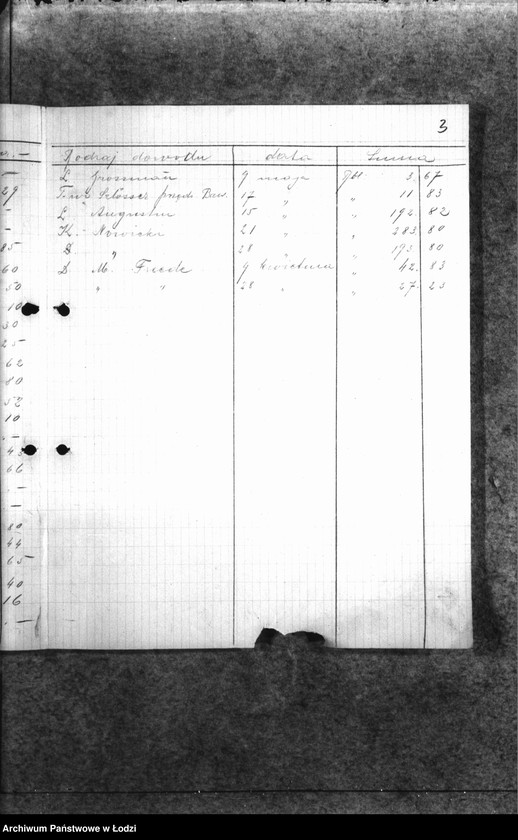 3
Rodzaj dowodu data Suma
29 L. Grossman 9 maja 3. 67
17 " " 11 83
L. Augustin 15 " " 192. 82
K. Nowicki 21 " " 283. 80
85 D. " 28 " " 193. 80
60 D. M. 9 kwietnia " 42. 83
50 " " 28 " " 27. 23
10
30
25
62
80
52
10
43
66
80
44
65
40
16
Archiwum Państwowe w Łodzi